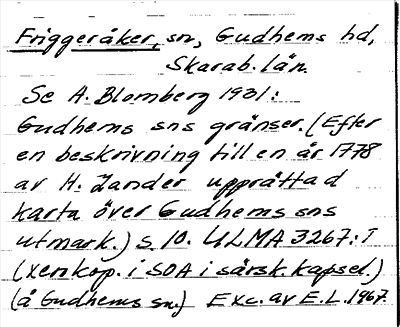 Friggeråker, sn, Gudhems hd,
Skarab. län.
Se A. Blomberg 1931:
Gudhems sns gränser. (Efter
en beskrivning till en år 1778
av H. Zander upprättad
karta över Gudhems sns
utmark.) s. 10. ULMA 3267:1
(xerokop. i SOA i särsk. kapsel.)
(å Gudhems sn.) Exc. av E.L. 1967.